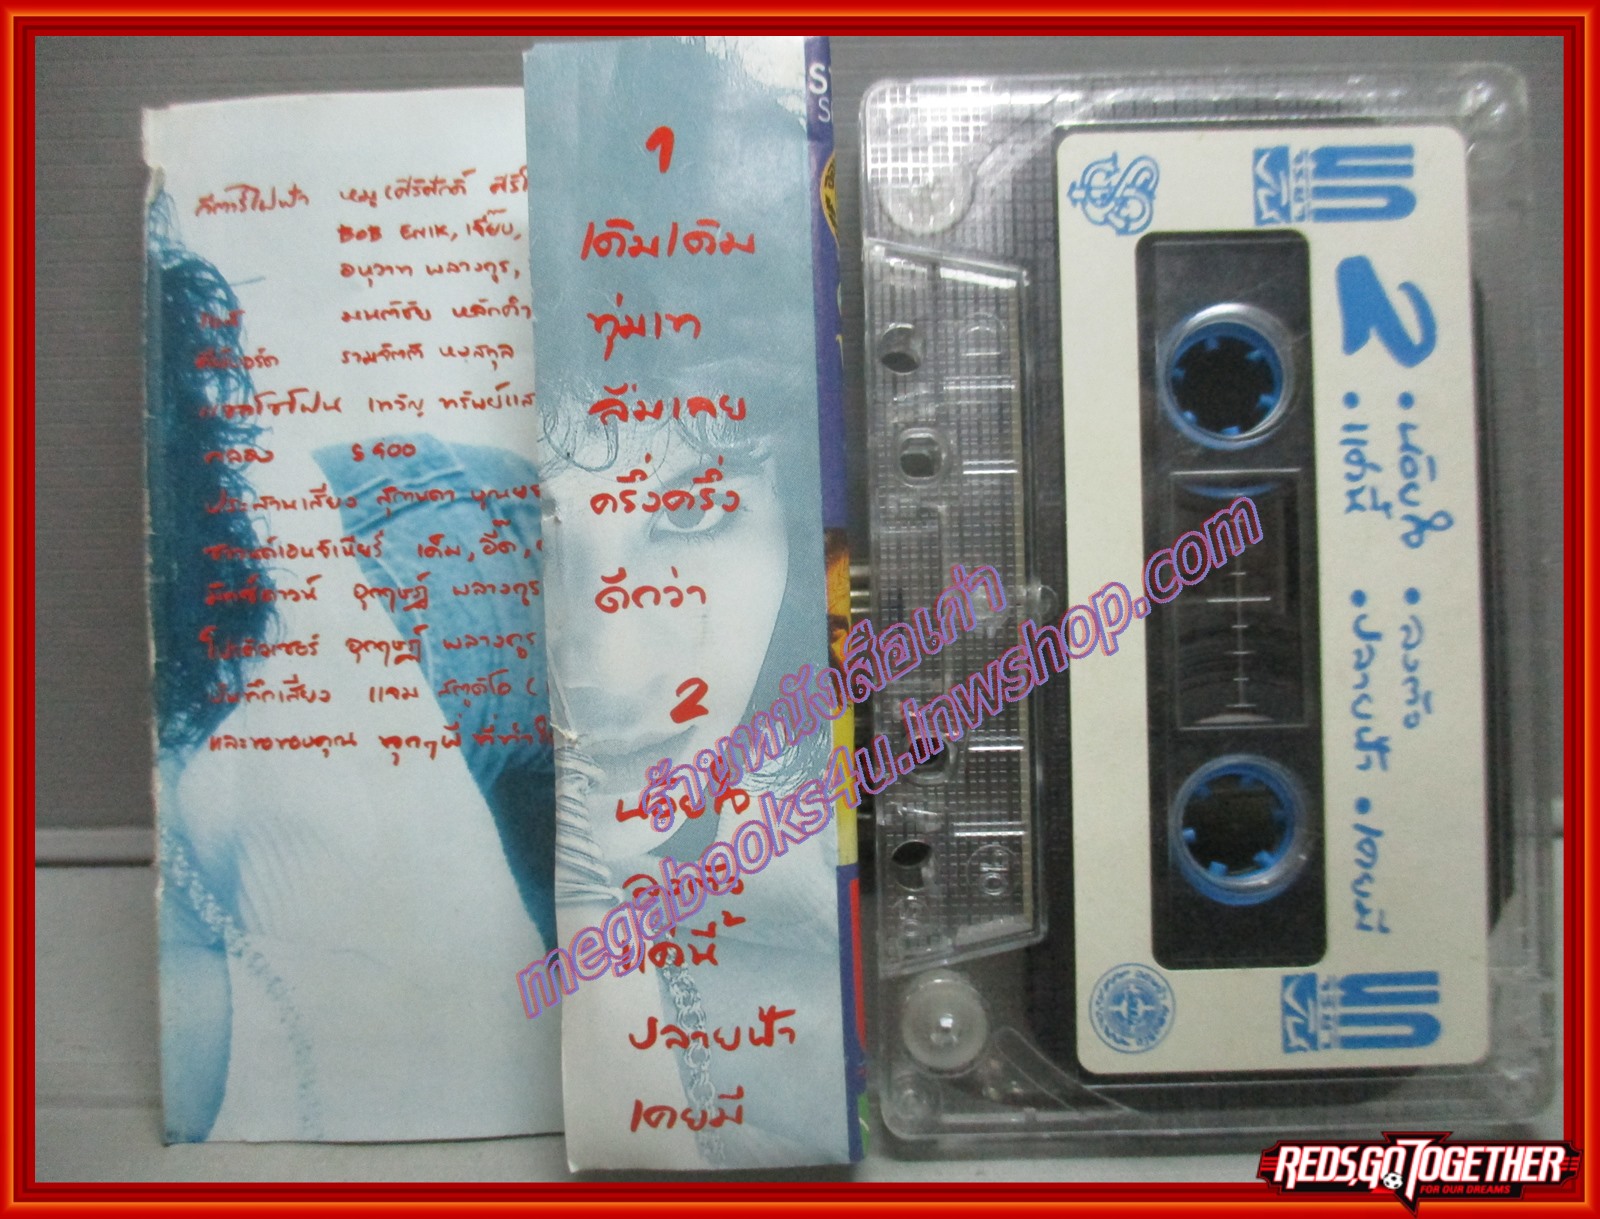 กีตาร์ไฟฟ้า หมู เศิริศักดิ์
BOB ENIK, เจี๊ยบ,
อนุวาท พลางกูร,
เบส มนต์ชัย หลักคำ
คีย์บอร์ด รามจิตติ หงสกุล
แซกโซโฟน เทวัญ ทรัพย์แส
กลอง S 900
ประสานเสียง สุกานดา บุณยร
ซาวนด์เอนจิเนียร์ เต็ม, อี๊ด,
มิกซ์ดาวน์ อุกฤษฏ์ พลางกูร
โปรดิวเซอร์ อุกฤษฏ์ พลางกูร
บันทึกเสียง แจม สตูดิโอ (
และขอขอบคุณ ทุกๆพี่ ที่ทำใ
1
เดิมเดิม
ทุ่มเท
ลืมเลย
ครึ่งครึ่ง
ดีกว่า
2
ลงตัว
แค่นี้
ปลายฟ้า
เคยมี
2
• ลงตัว
• แค่นี้ • ปลายฟ้า • เคยมี
ร้านหนังสือเก่า
megabooks4u.inwshop.com
REDS,GO TOGETHER
FOR OUR DREAMS